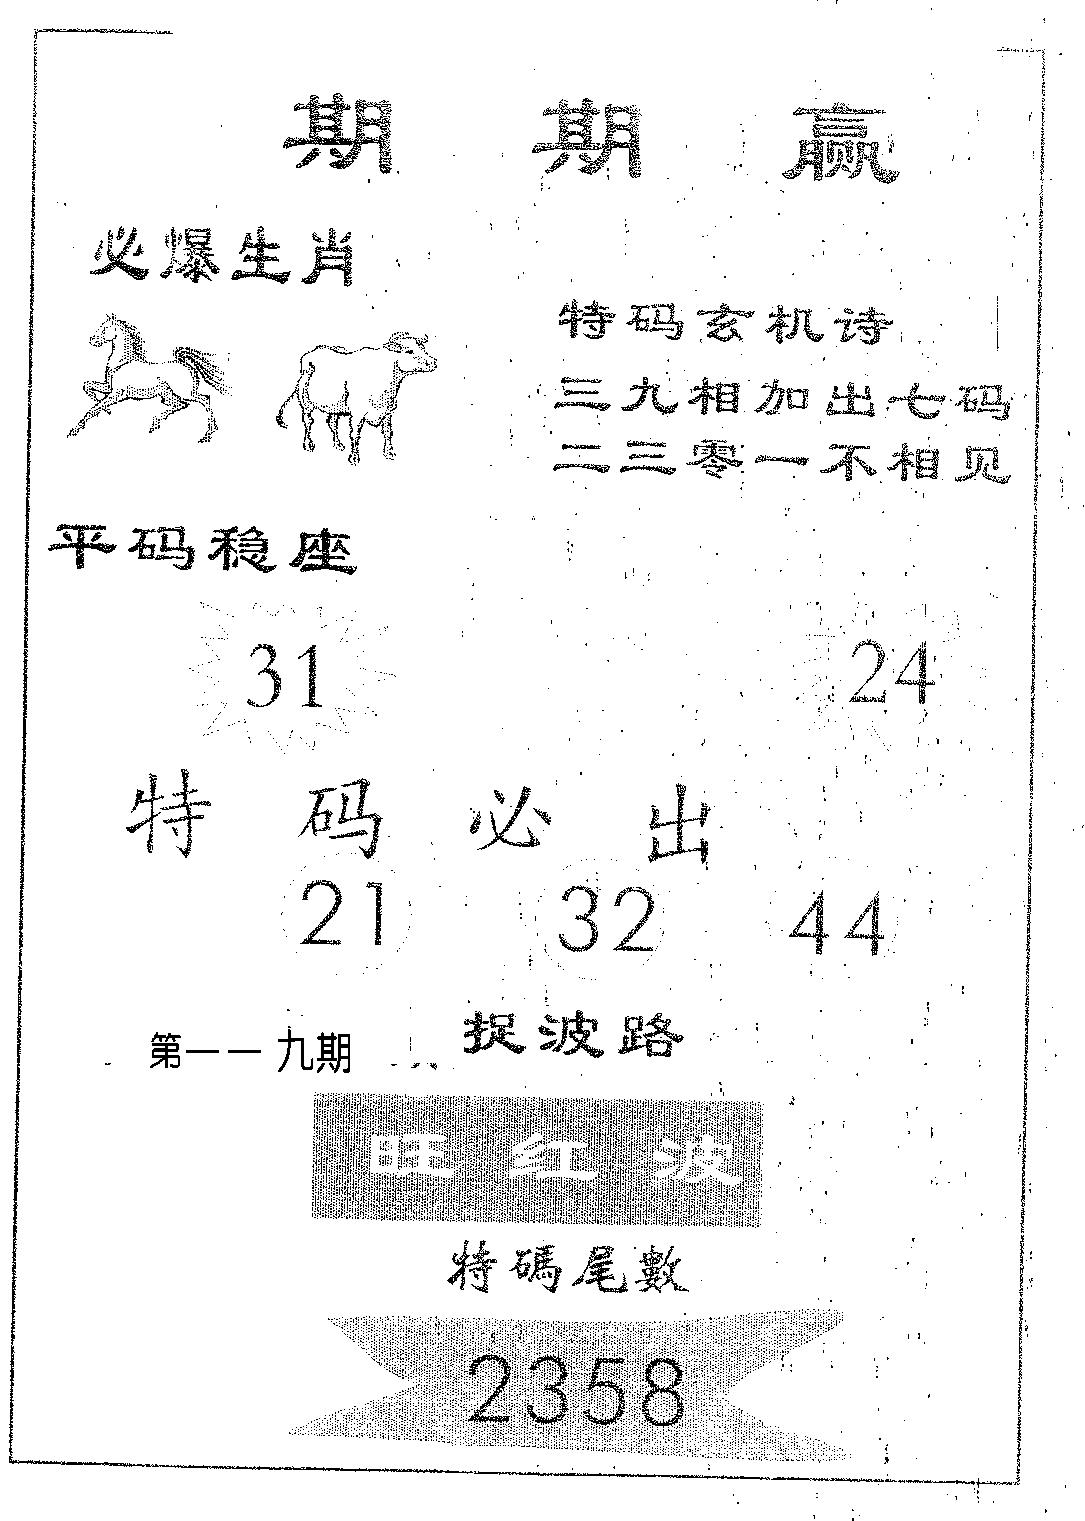 期期赢
必爆生肖
特码玄机诗
三九相加出七码
二三零一不相见
平码稳座
31
24
特码必出
21 32 44
第一一九期
捉波路
旺红波
特碼尾數
2358